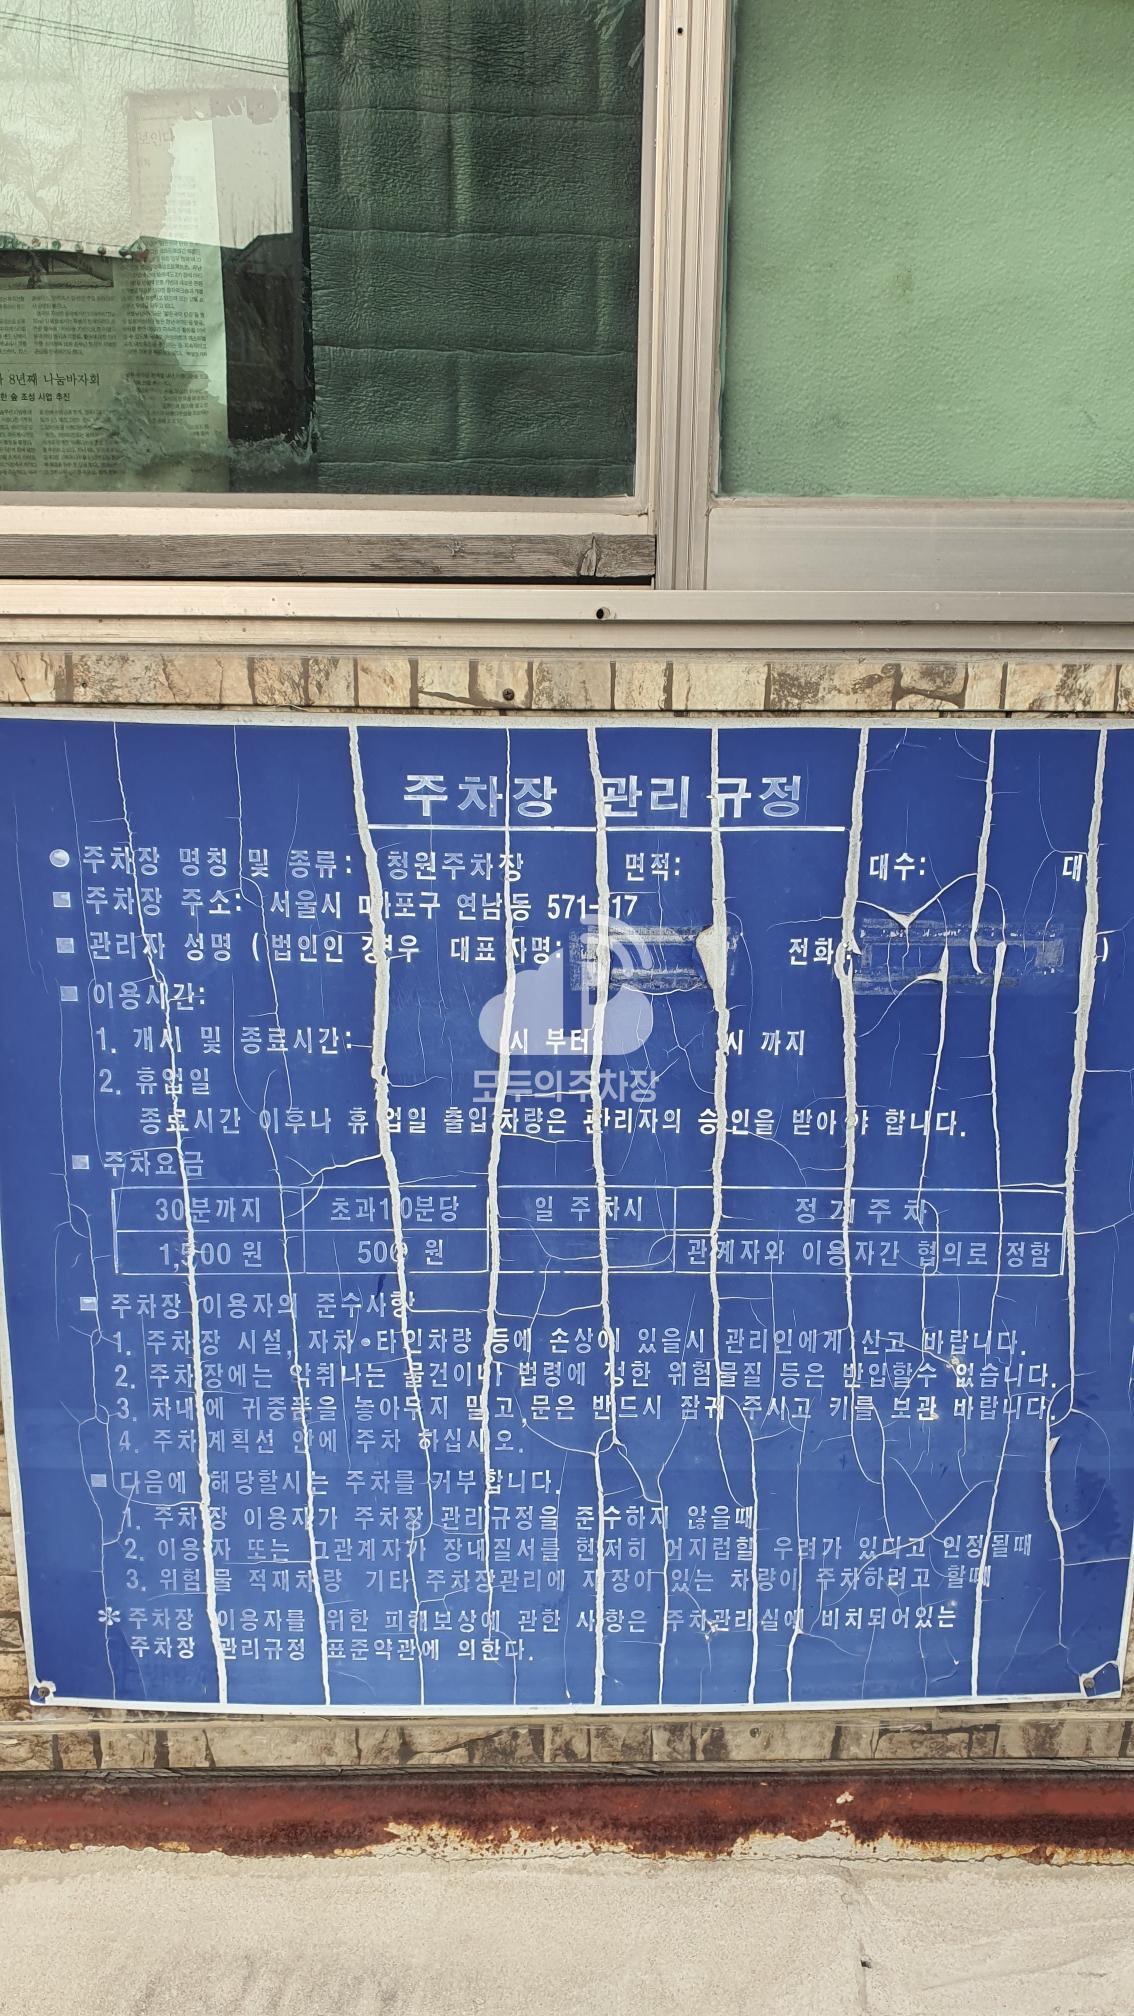 8년째 나눔바자회
한 숲 조성 사업 추진
주차장 관리규정
● 주차장 명칭 및 종류: 청원주차장 면적: 대수: 대
■ 주차장 주소: 서울시 마포구 연남동 571-17
■ 관리자 성명 (법인인 경우 대표자명: 전화: )
■ 이용시간:
1. 개시 및 종료시간: 시 부터 시 까지
2. 휴업일
모두의주차장
종료시간 이후나 휴업일 출입차량은 관리자의 승인을 받아야 합니다.
■ 주차요금
30분까지 초과10분당 일 주차시 정기주차
1,500 원 500 원 관계자와 이용자간 협의로 정함
■ 주차장 이용자의 준수사항
1. 주차장 시설, 자차•타인차량 등에 손상이 있을시 관리인에게 신고 바랍니다.
2. 주차장에는 악취나는 물건이나 법령에 정한 위험물질 등은 반입할수 없습니다.
3. 차내에 귀중품을 놓아두지 말고, 문은 반드시 잠궈 주시고 키를 보관 바랍니다.
4. 주차계획선 안에 주차 하십시오.
■ 다음에 해당할시는 주차를 거부합니다.
1. 주차장 이용자가 주차장 관리규정을 준수하지 않을때
2. 이용자 또는 그관계자가 장내질서를 현저히 어지럽힐 우려가 있다고 인정될때
3. 위험물 적재차량 기타 주차장관리에 지장이 있는 차량이 주차하려고 할때
✻ 주차장 이용자를 위한 피해보상에 관한 사항은 주차관리실에 비치되어있는
주차장 관리규정 표준약관에 의한다.